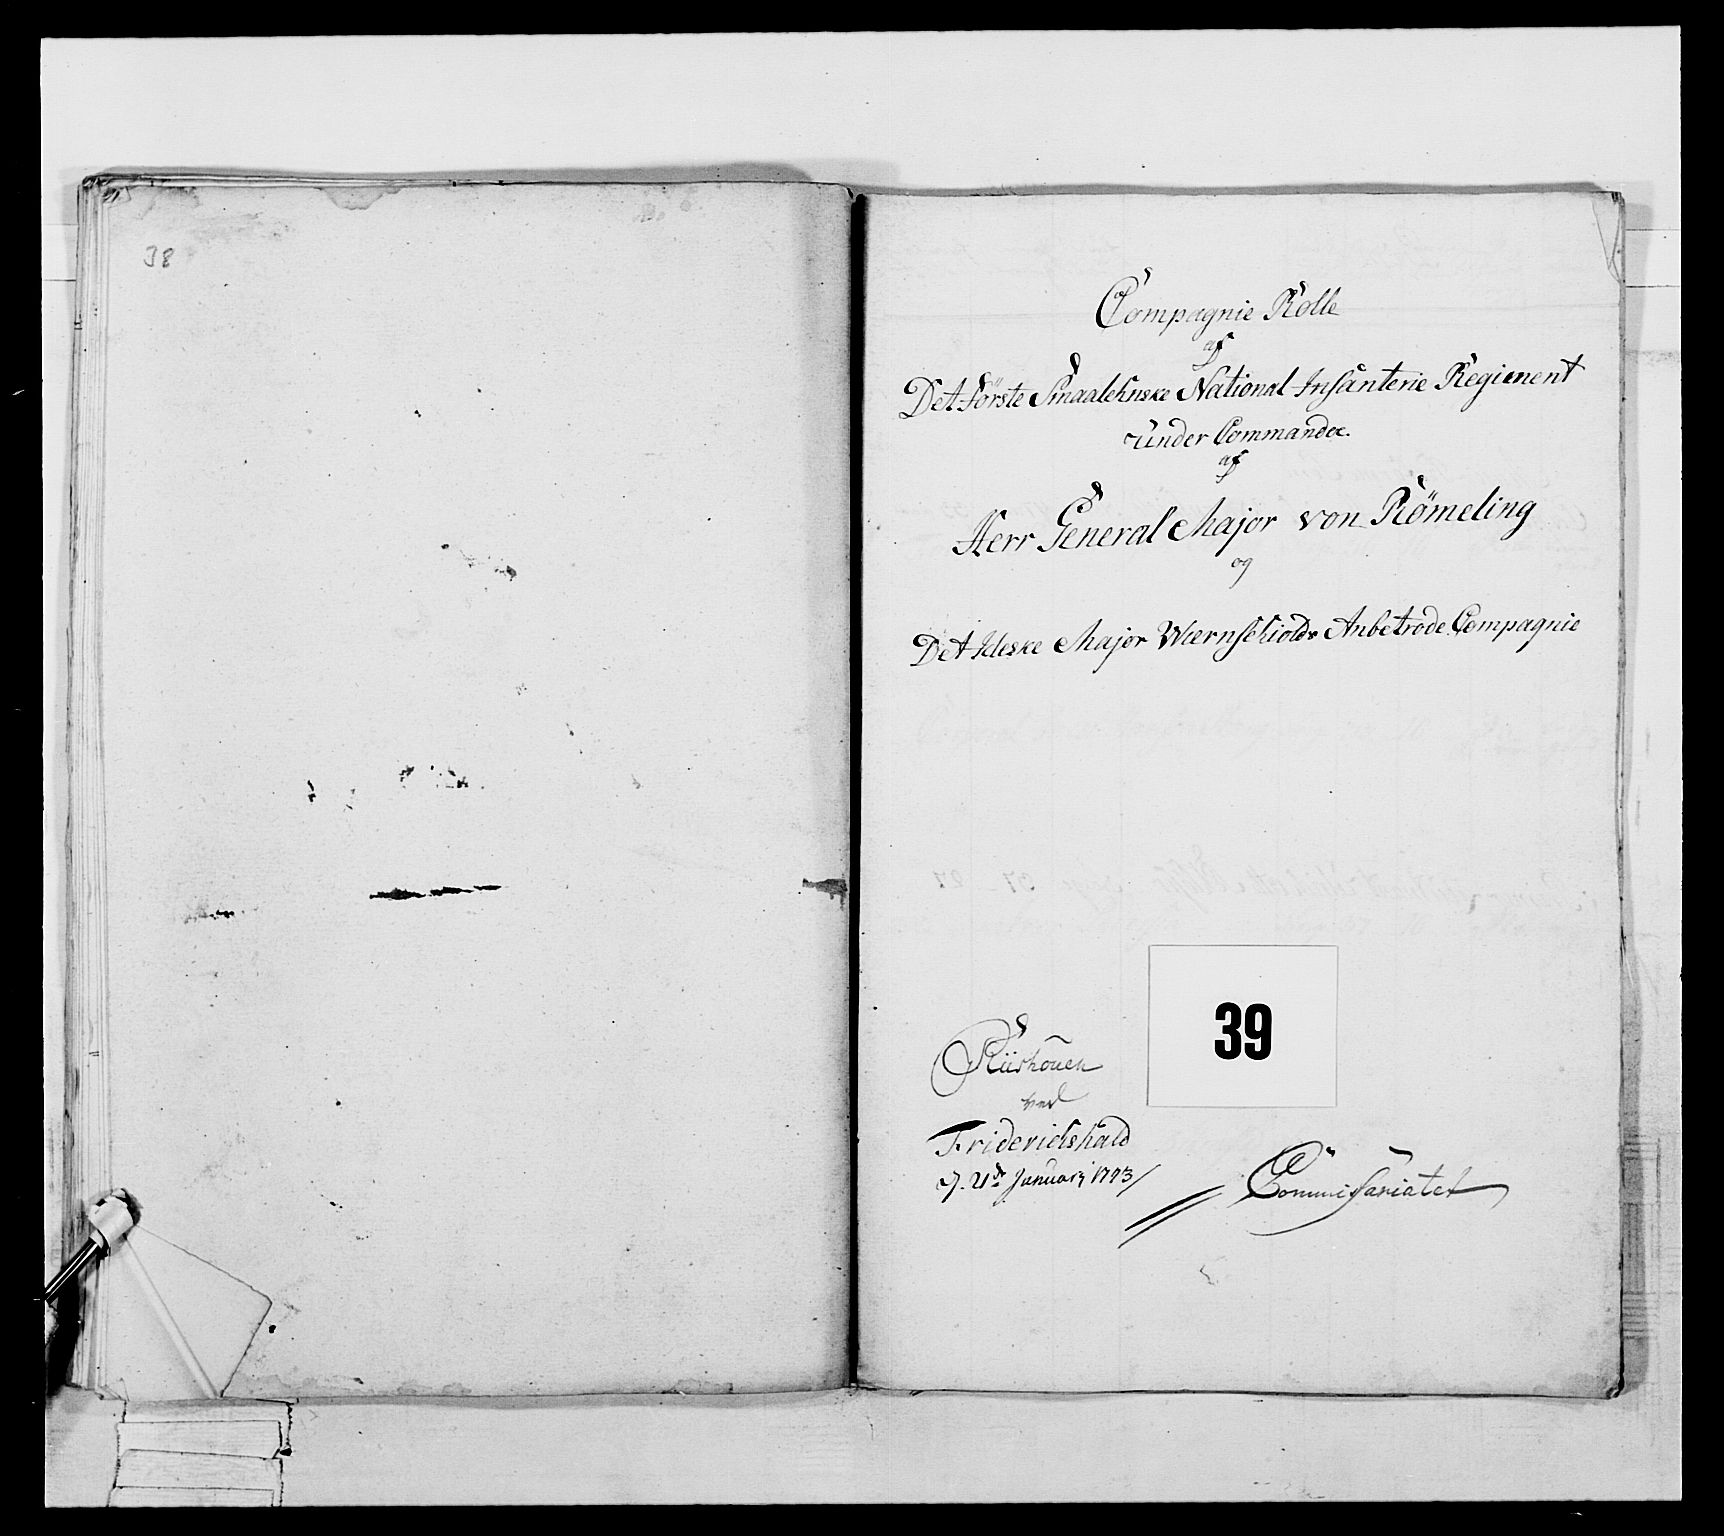 38
Compagnie Rolle
af
Det Förste Smaalehnske National Infanterie Regiment
under Commandoe.
af
Herr General Major von Römeling
og
Det Ideske Major Wærnschiolds Anbetrode Compagnie
39
Riishouen
ved
Friderichshald
Januarj 1793
Commissariatet